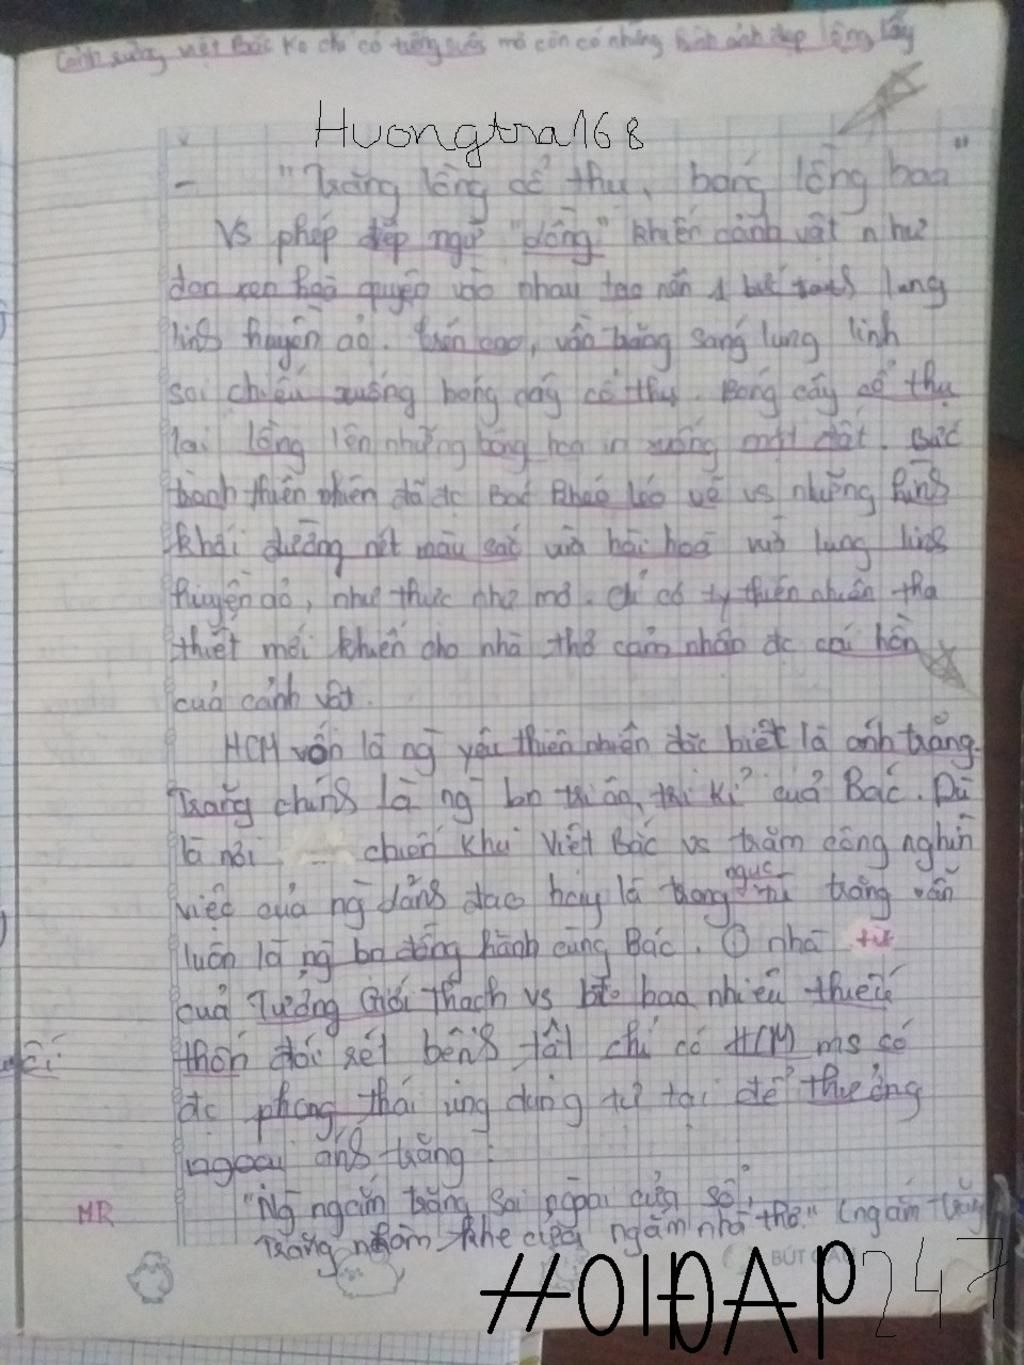 Cảnh rừng Việt Bắc ko chỉ có tiếng suối mà còn có những hình ảnh đẹp lộng lẫy
Huongtra168
- "Trăng lồng cổ thụ, bóng lồng hoa"
Vs phép điệp ngữ "lồng" khiến cảnh vật như
đan xen hoà quyện vào nhau tạo nên 1 bức tranh lung
linh huyền ảo. trên cao, vầng trăng sáng lung linh
soi chiếu xuống bóng cây cổ thụ. Bóng cây cổ thụ
lại lồng lên những bông hoa in xuống mặt đất. Bức
tranh thiên nhiên đã đc Bác khéo léo vẽ vs những hình
khối đường nét màu sắc vừa hài hoà vừa lung linh
huyền ảo, như thực như mơ. chỉ có ty thiên nhiên tha
thiết mới khiến cho nhà thơ cảm nhận đc cái hồn
của cảnh vật.
HCM vốn là ng yêu thiên nhiên đặc biệt là ánh trăng.
Trăng chính là ng bn tri âm, tri kỉ của Bác. Dù
là nơi chiến khu Việt Bắc vs trăm công nghìn
việc của ng lãnh đạo hay là trong ngục tù trăng vẫn
luôn là ng bn đồng hành cùng Bác. Ở nhà tù
của Tưởng Giới Thạch vs bao nhiêu thiếu
thốn đói rét bệnh tật chỉ có HCM ms có
đc phong thái ung dung tự tại để thưởng
ngoạn ánh trăng:
MR
"Ng ngắm trăng soi ngoài cửa sổ,
Trăng nhòm khe cửa ngắm nhà thơ." (ngắm trăng
BÚT
#HOIĐAP247